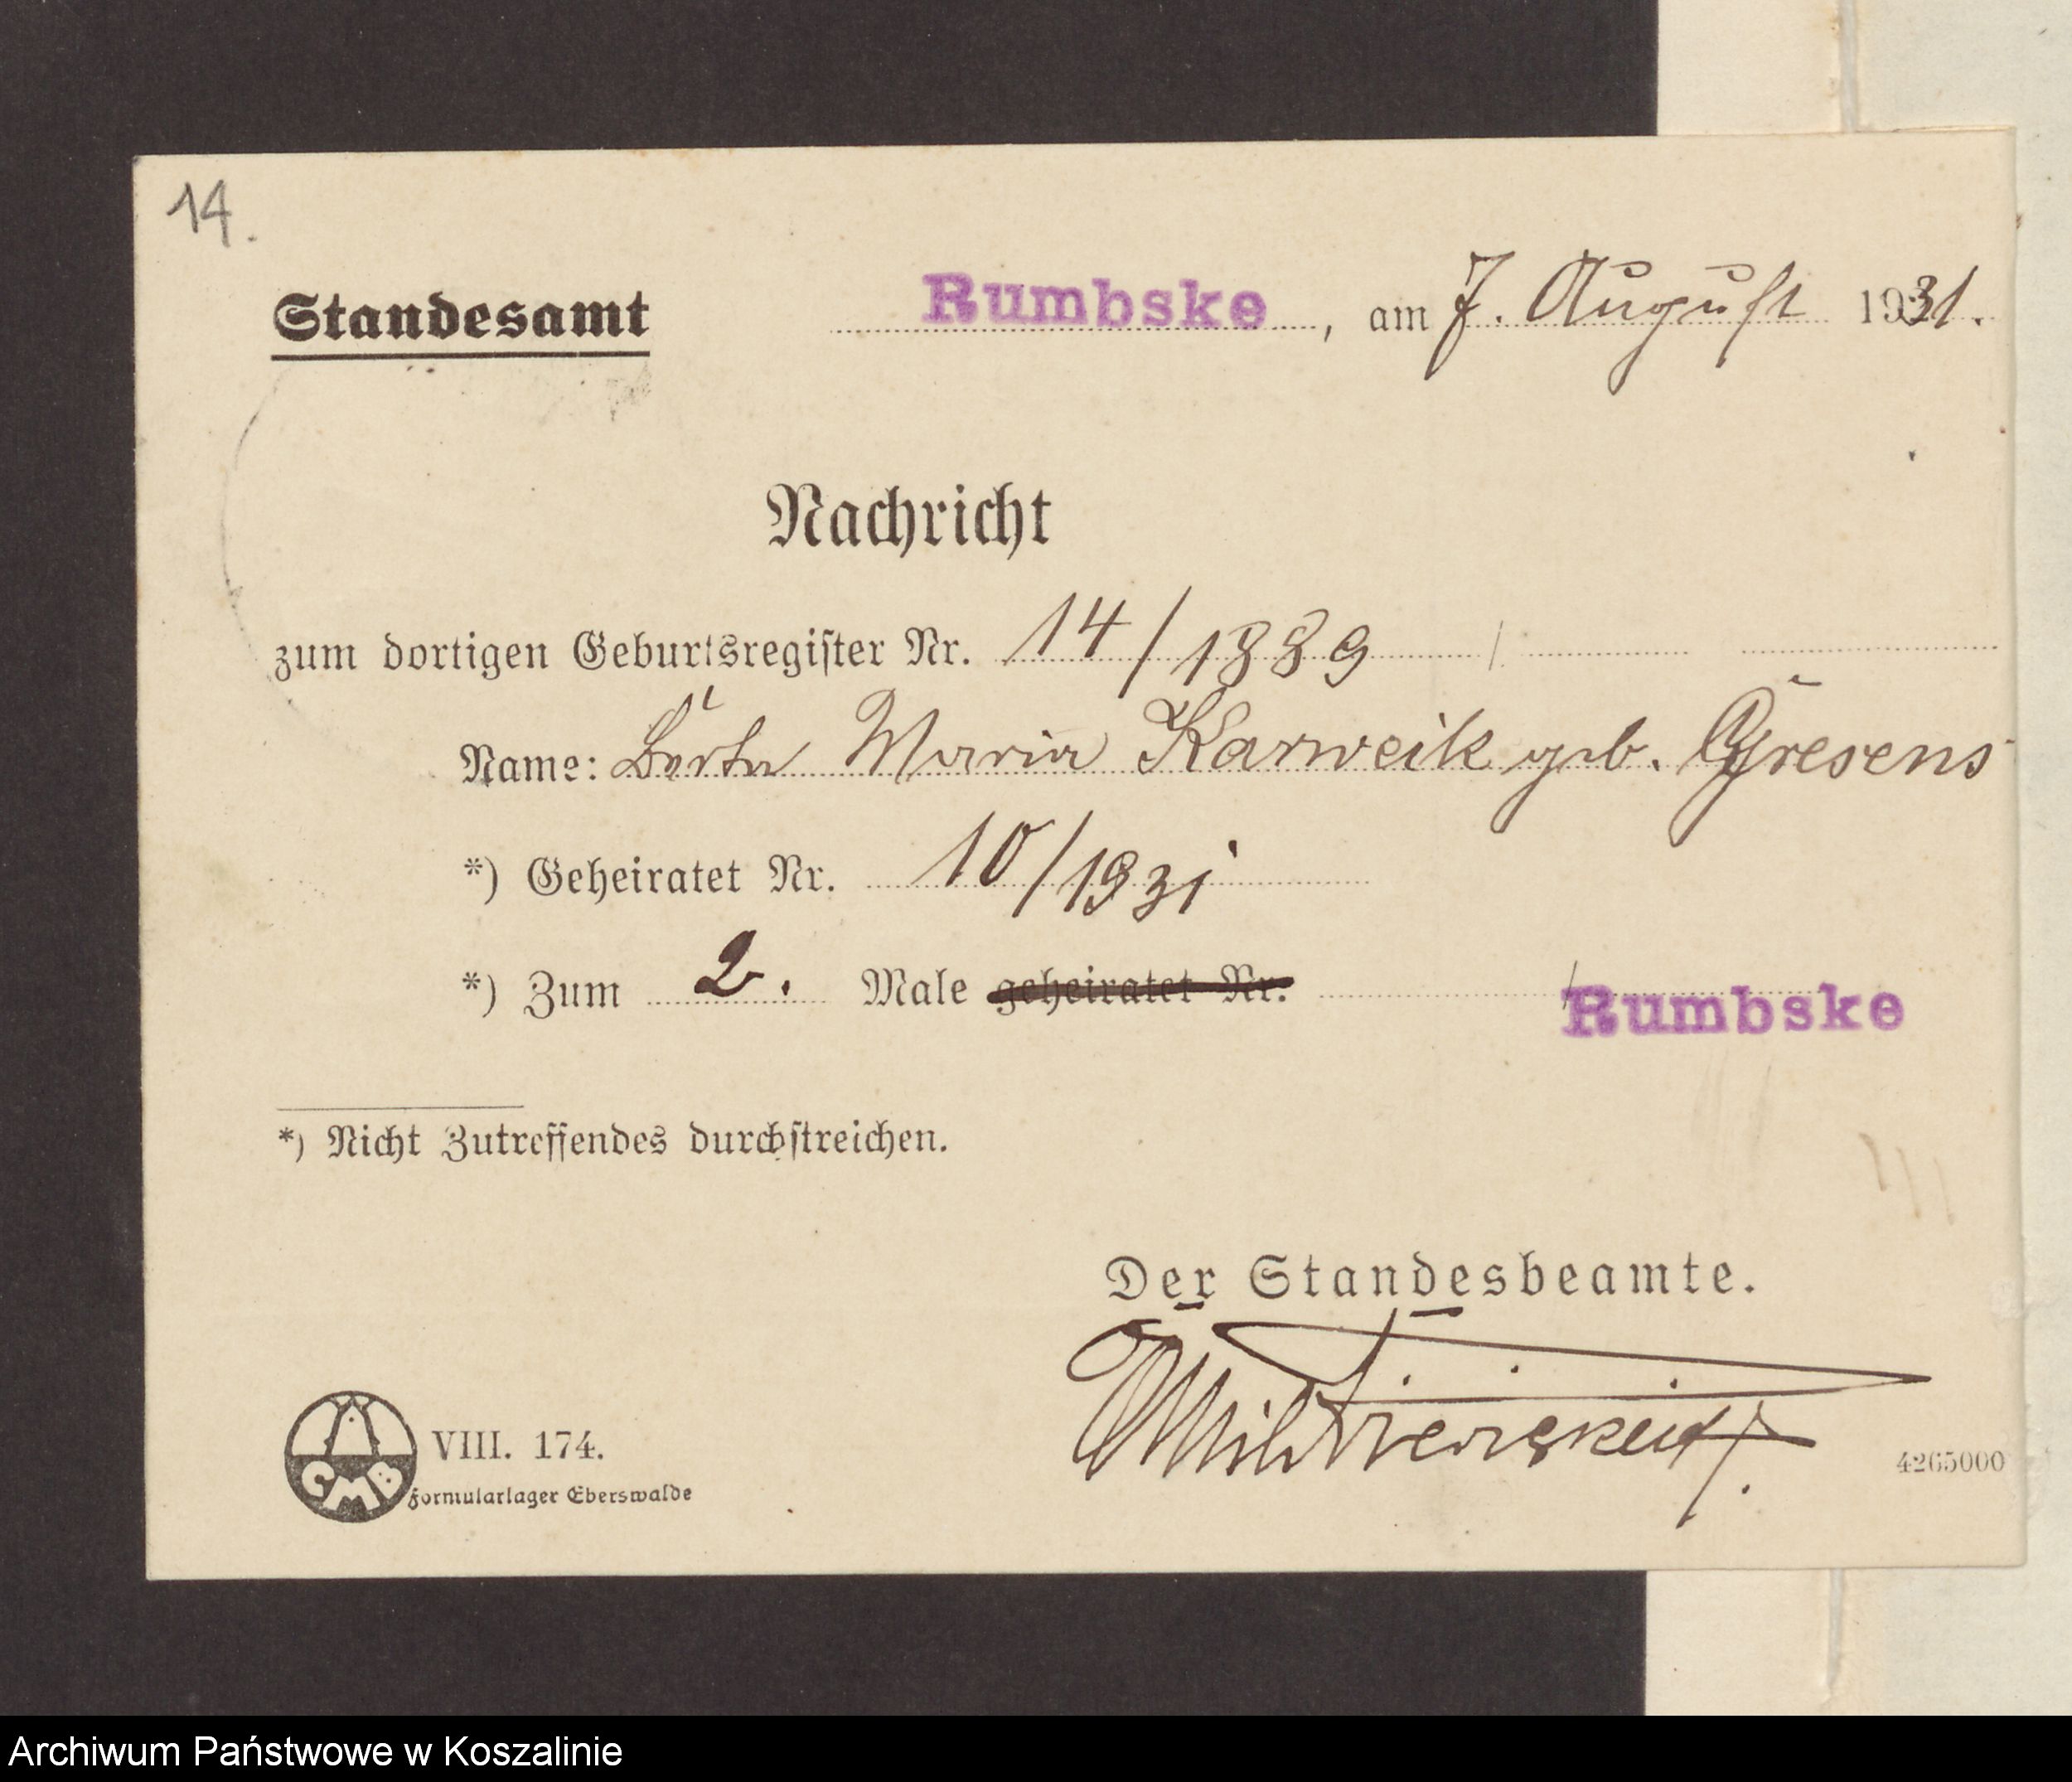 14.
Standesamt Rumbske, am 7. August 1931.
Nachricht
zum dortigen Geburtsregister Nr. 14/1889
Name: Berta Maria Karweik geb. Gresens
*) Geheiratet Nr. 10/1931
*) Zum 2. Male geheiratet Nr. Rumbske
*) Nicht Zutreffendes durchstreichen.
Der Standesbeamte.
GMB VIII. 174.
Formularlager Eberswalde
4265000
Archiwum Państwowe w Koszalinie